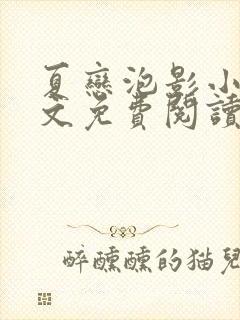 夏戀泡影小
文免費閱讀
醉醺醺的猫兒